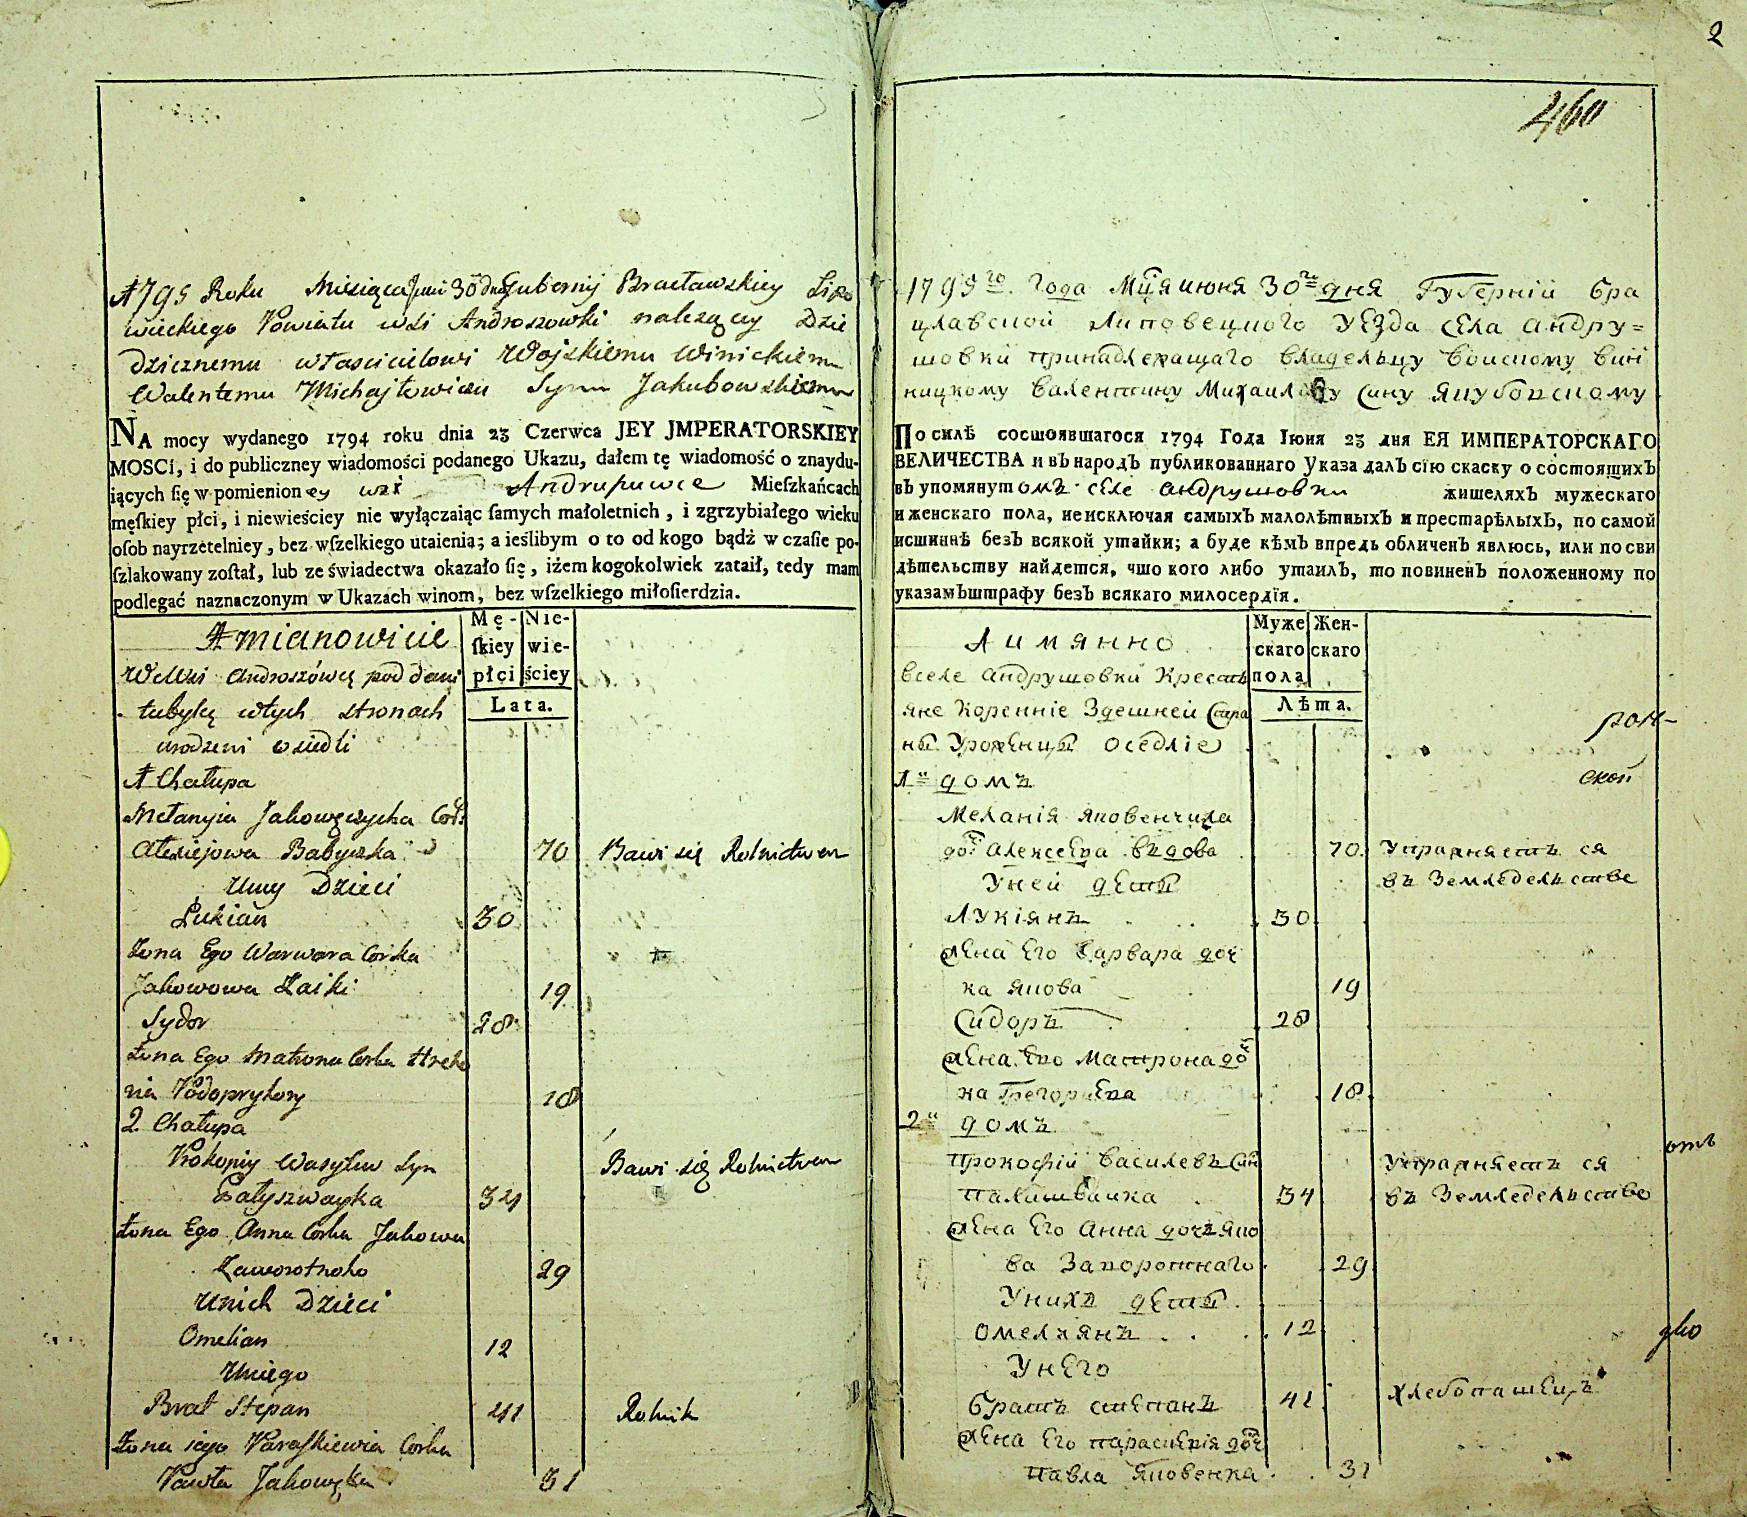 1795 Roku Miesiąca Juni 30 dnia Gubernij Bracławskiey Lipo
wieckiego Powiatu wsi Androszowki należący Dzie
dzicznemu włascicielowi Woyskiemu Winickiemu
Walentemu Michayłowicu Synu Jakubowskiemu
NA mocy wydanego 1794 roku dnia 23 Czerwca JEY JMPERATORSKIEY
MOSCI, i do publiczney wiadomości podanego Ukazu, dałem tę wiadomość o znaydu-
iących ſię w pomienioney wsi Andruszuwce Mieſzkańcach
męſkiey płci, i niewieściey nie wyłączaiąc ſamych małoletnich, i zgrzybiałego wieku
oſob nayrzetelniey, bez wſzelkiego utaienia; a ieślibym o to od kogo bądź w czaſie po-
ſzlakowany zoſtał, lub ze świadectwa okazało ſię, iżem kogokolwiek zataił, tedy mam
podlegać naznaczonym w Ukazach winom, bez wſzelkiego miłoſierdzia.
A mianowicie
Mę- Nie-
ſkiey wie-
płci ściey
Lata.
We Wsi Androszówcę poddani
tubylcę wtych stronach
urodzeni osiedli
1 Chałupa
Mełanyia Jakowęczycha Cor:
Alexiejowa Babyczka 70 Bawi się Rolnictwem
U niey Dzieci
Łukian 30
Żona Ego Warwara Corka
Jakowowa Zaiki 19
Sydor 28
Żona Ego Matrona Corka Hreho
ria Podopryhory 18
2 Chałupa
Prokopiy Wasylew Syn Bawi się Rolnictwem
Pałyszwayka 34
Żona Ego Anna Corka Jakowa
Zaworotnoho 29
U nich Dzieci
Omelian 12
U niego
Brat Stepan 41 Rolnik
Żona iego Paraſkiewia Corka
Pawła Jakowęka 31
2
460
1795го Года Мця июня 30го дня Губерніи Бра
цлавской Липовецкого Уезда села Андру=
шовки принадлежащаго владельцу войскому вин
ницкому Валентину Михаилову сину Якубовскому
По силѣ состоявшагося 1794 Года Іюня 23 дня ЕЯ ИМПЕРАТОРСКАГО
ВЕЛИЧЕСТВА и въ народъ публикованнаго Указа далъ сїю скаску о состоящихъ
въ упомянутомъ селе Андрушовки жителяхъ мужескаго
и женскаго пола, неисключая самыхъ малолѣтныхъ и престарѣлыхъ, по самой
истиннѣ безъ всякой утайки; а буде кѣмъ впредь обличенъ явлюсь, или по сви
дѣтельству найдется, что кого либо утаилъ, то повиненъ положенному по
указамъ штрафу безъ всякаго милосердїя.
А имянно
Муже Жен-
скаго скаго
пола
Лѣта.
вселе Андрушовки Крестъ
яне Коренніе Здешней Сторо
ны Уроженцы оседліе
рон-
ской
1й домъ
Меланія яковенчиха
доч Алексеева вдова 70 Упражняетъ ся
въ Земледельстве
У ней дети
Лукіянъ 30
жена Его Варвара доч
ка якова 19
Сидоръ 28
жена Его Матрона доч
ка Григориева 18
2й домъ
отъ
Прокофій Василевъ син Упражняетъ ся
Палишвайка 34 въ Земледельстве
жена Его Анна дочъ яко
ва Заворотнаго 29
У нихъ дети
Омелянъ 12
У нЕго
Братъ степанъ 41 хлебопашецъ
жена Его параскевія доч
Павла Яковенка 31